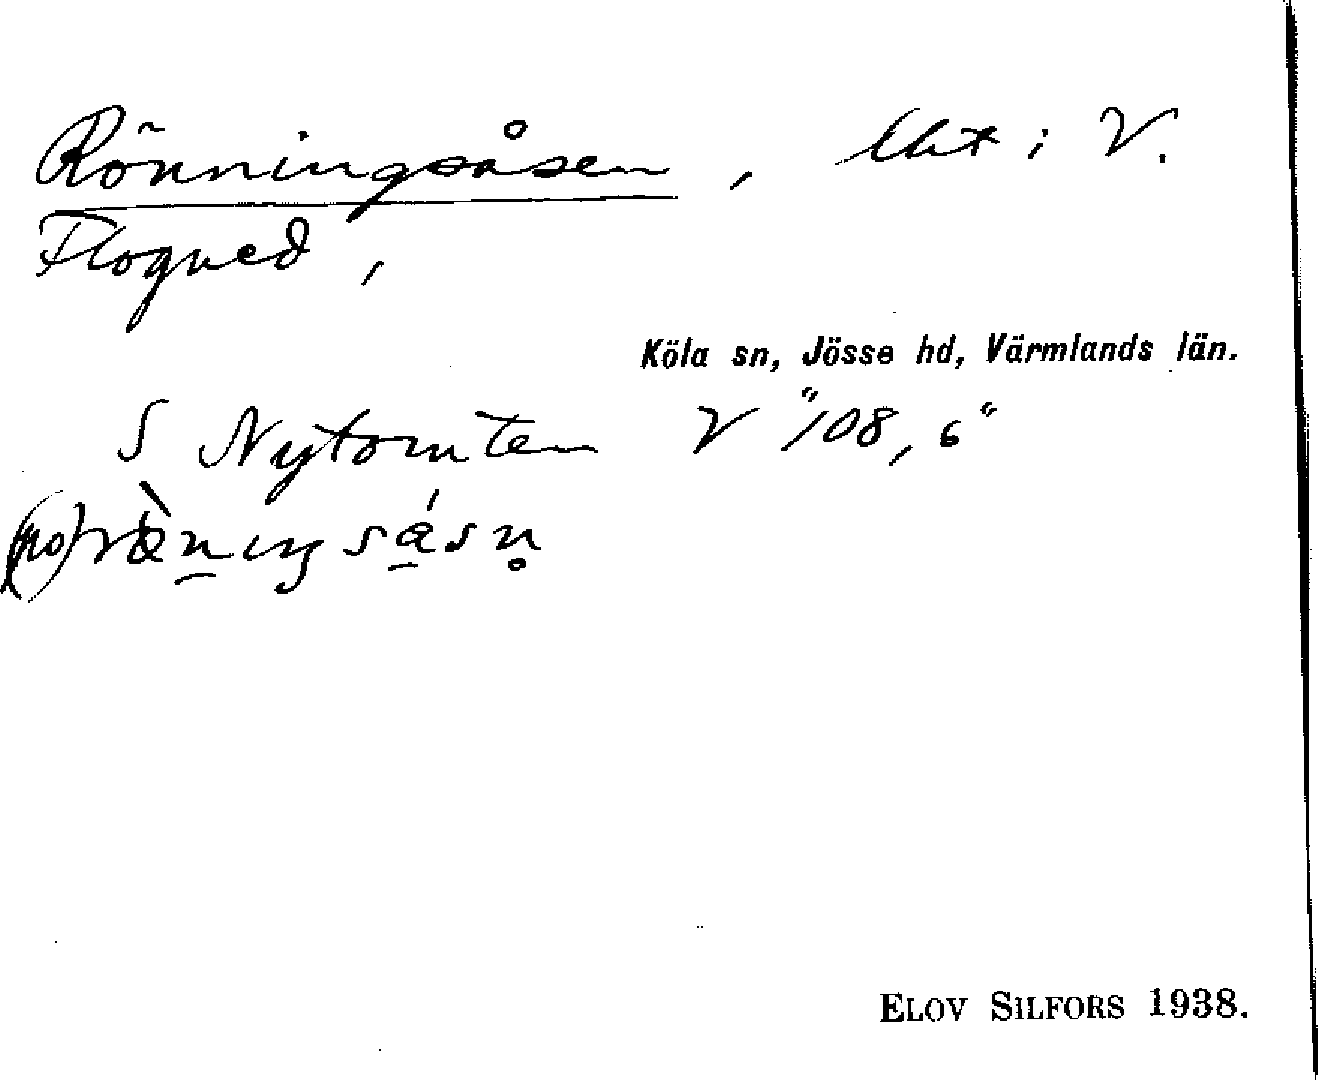 Rönningsåsen, lht i V.
Flogned,
Köla sn, Jösse hd, Värmlands län.
S Nytomten V "108, 6"
(no)
ELOV SILFORS 1938.